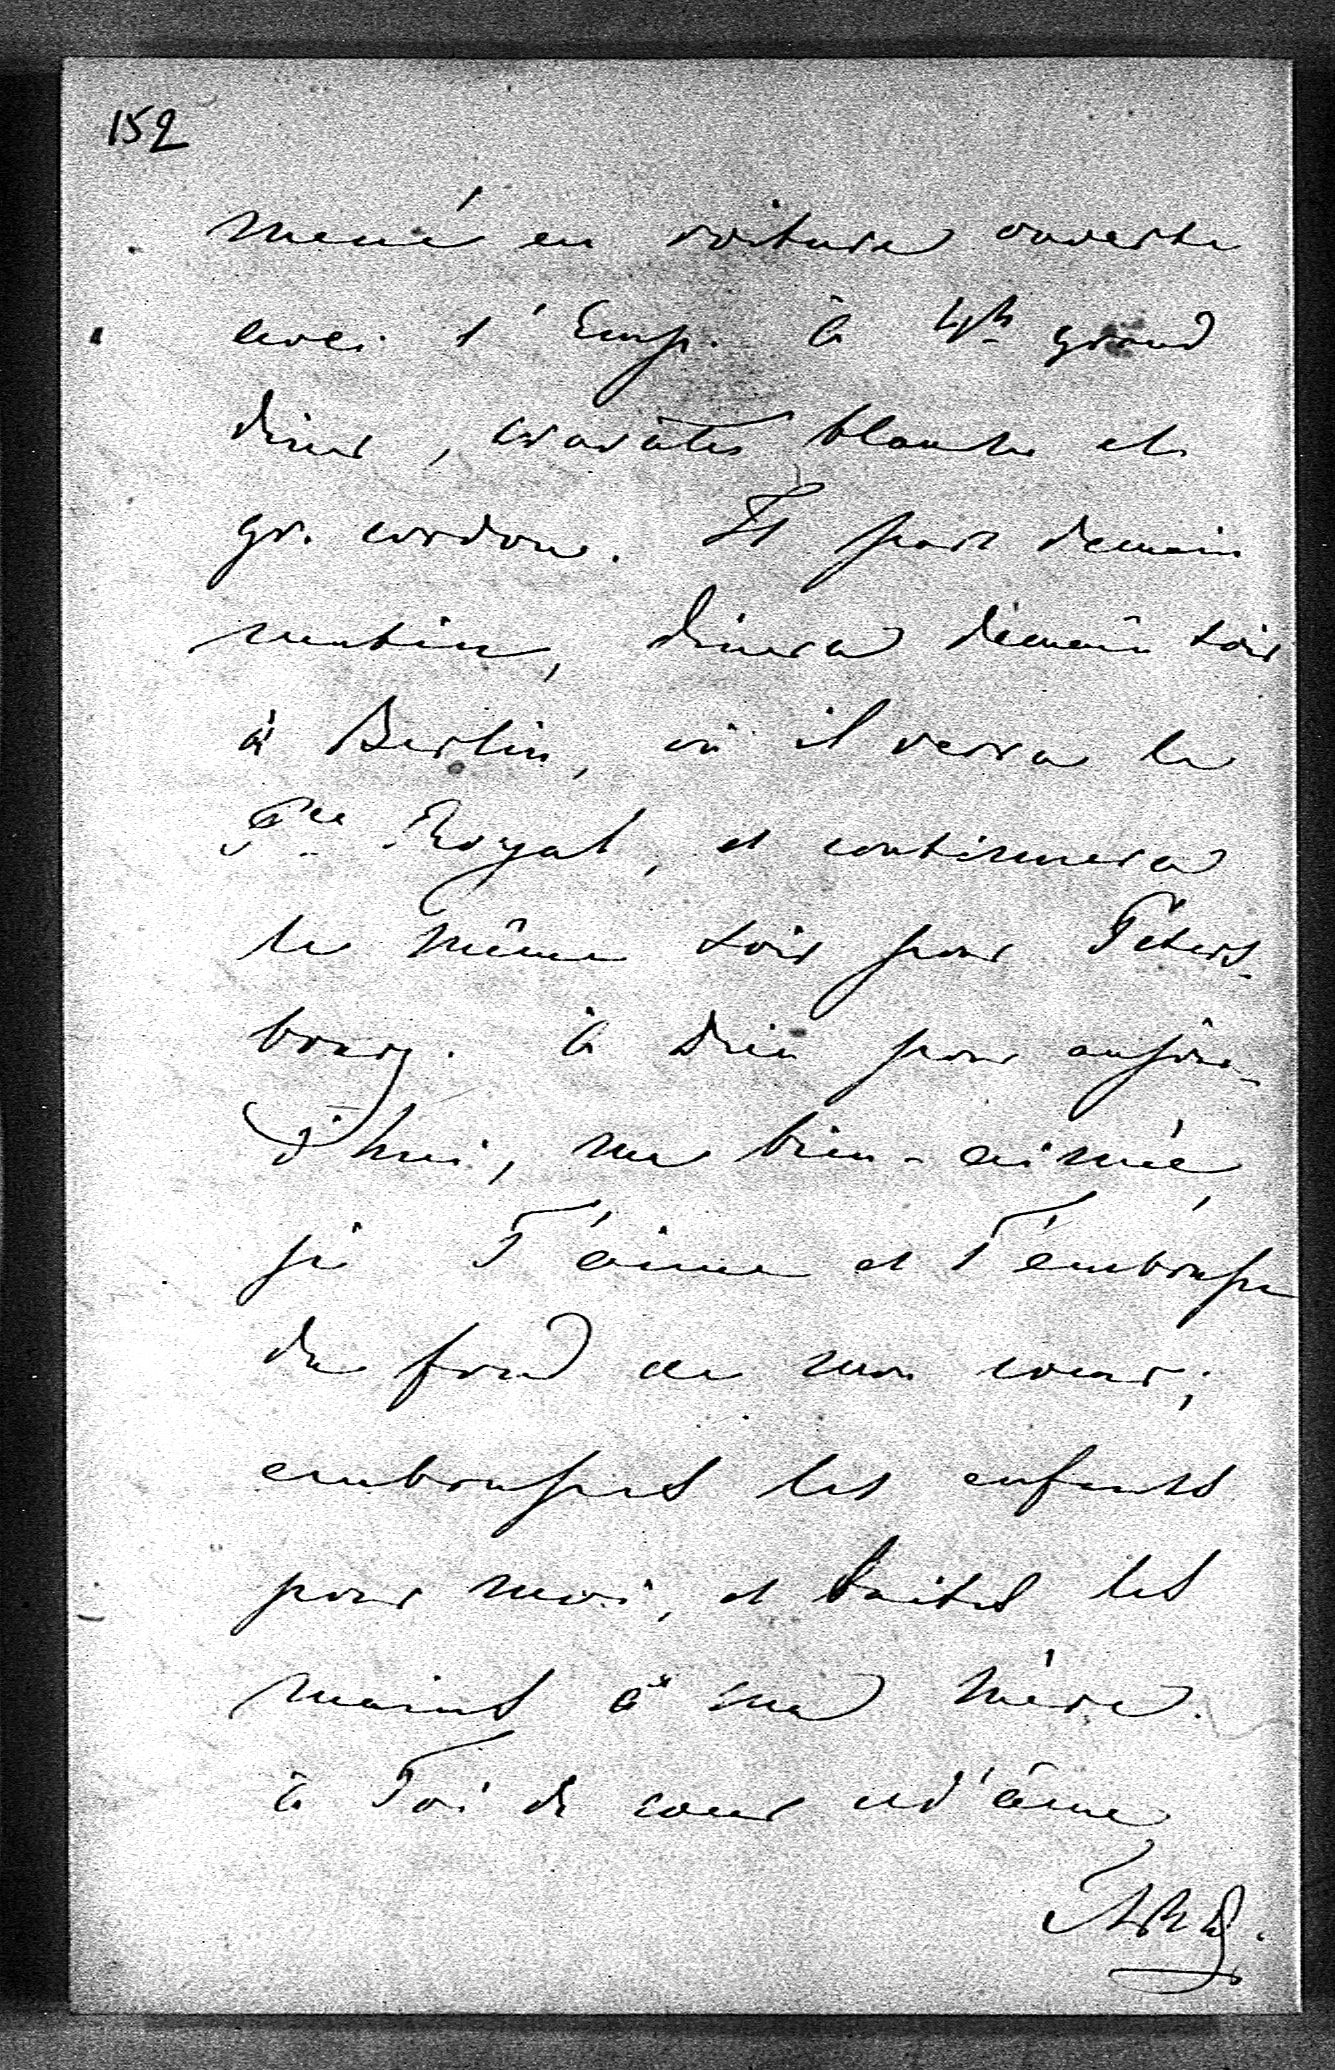 152
mené en voiture ouverte
avec l'Emp. à 4h grand
diner, cravates blanche et
gr. cordon. Il part demain
matin, dinera demain soir
à Berlin, où il verra le
Pce Royal, et continuera
le même soir pour Peters-
bourg. à Dieu pour aujour-
d'hui, ma bien-aimée
je T'aime et T'embrasse
du fond de mon coeur;
embrasses les enfants
pour moi, et baises les
mains à ma mère.
à Toi de coeur et d'âme